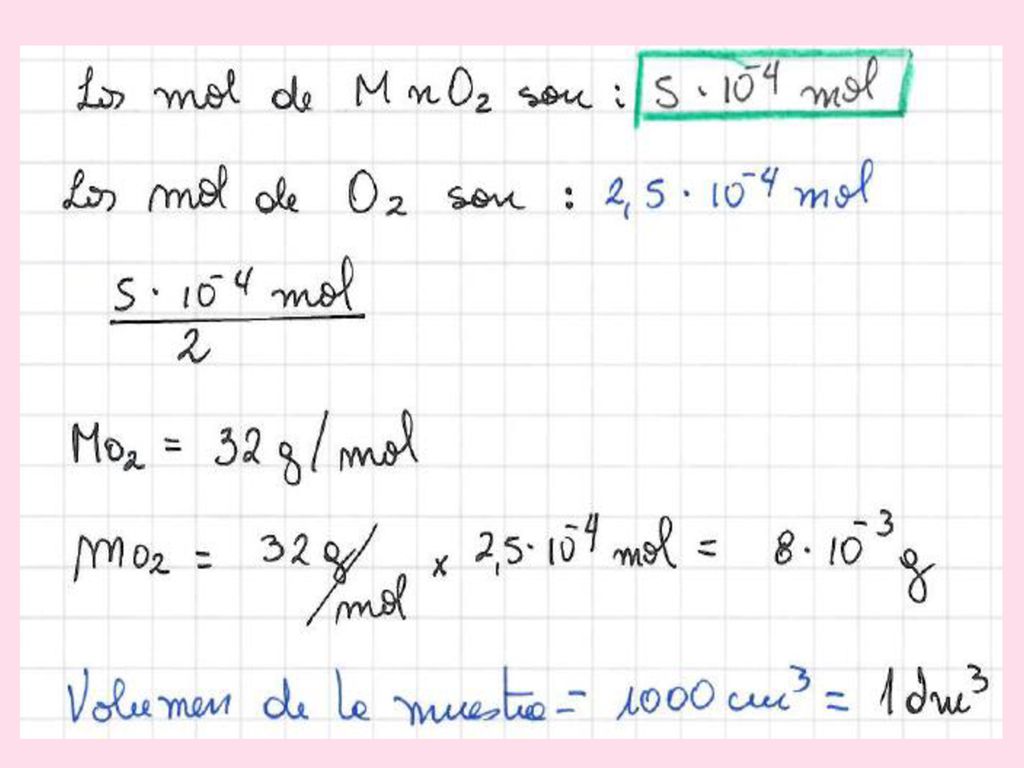 Los mol de MnO₂ son : 5 · 10⁻⁴ mol
Los mol de O₂ son : 2,5 · 10⁻⁴ mol
5 · 10⁻⁴ mol
2
Mo₂ = 32 g/mol
mo₂ = 32 g/mol x 2,5 · 10⁻⁴ mol = 8 · 10⁻³ g
Volumen de la muestra = 1000 cm³ = 1 dm³